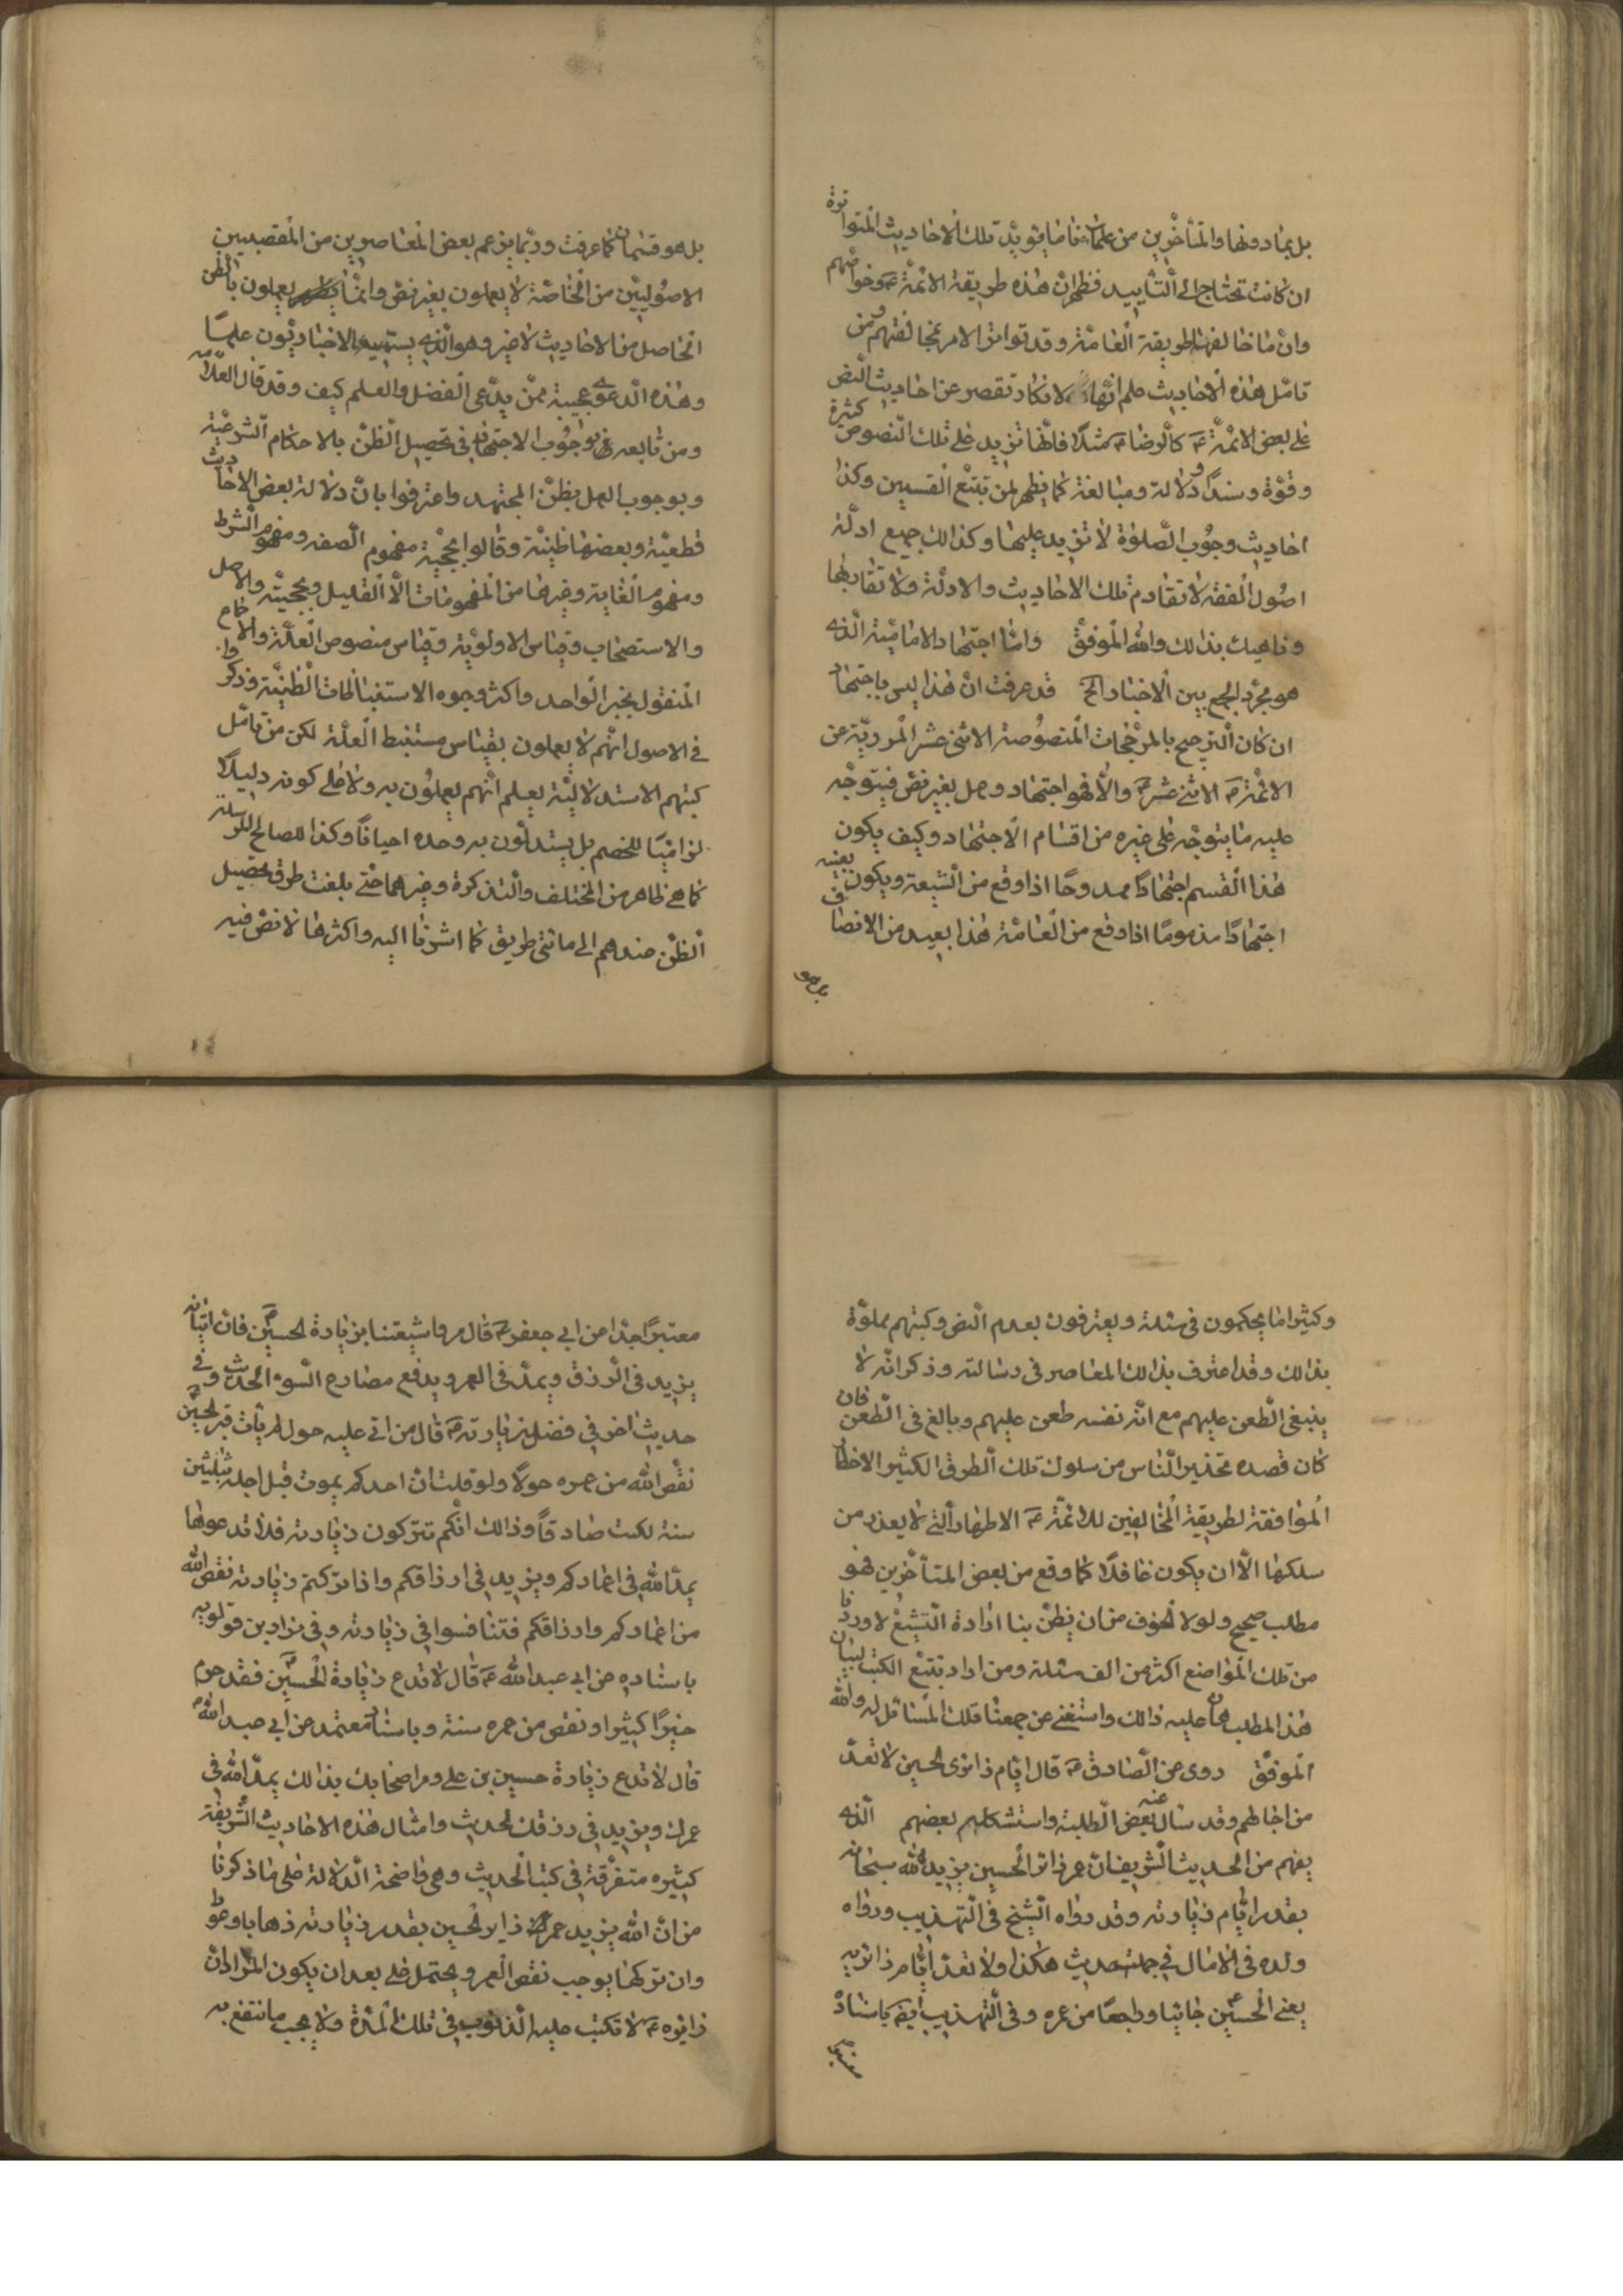 بل بما دونها والمتأخرين من علمائنا ما يؤيد تلك الاحاديث المتواترة
ان كانت تحتاج الى التأييد فظهر ان هذه طريقة الائمة ع وخواصهم
وان ما خالفها طريقة العامة وقد تواتر الامر بمخالفتهم ومن
تامل هذه الاحاديث علم انها لا تكاد تقصر عن احاديث النص
على بعض الائمة ع كالرضا ع مثلا فانها تزيد على تلك النصوص كثرة
وقوة وسندا ودلالة ومبالغة كما يظهر لمن تتبع القسمين وكذا
احاديث وجوب الصلوة لا تزيد عليها وكذالك جميع ادلة
اصول الفقه لا تقادم تلك الاحاديث والادلة ولا تقاربها
وناهيك بذالك والله الموفق واما اجتهاد الامامية الذى
هو مجرد الجمع بين الاخبار الخ قد عرفت ان هذا ليس باجتهاد
ان كان الترجيح بالمرجحات المنصوصة الاثنى عشر المروية عن
الائمة ع الاثنى عشر ع والا فهو اجتهاد وعمل بغير نص فيتوجه
عليه ما يتوجه على غيره من اقسام الاجتهاد وكيف يكون
هذا القسم اجتهادا ممدوحا اذا وقع من الشيعة ويكون بعينه
اجتهادا مذموما اذا وقع من العامة هذا بعيد من الانصاف
بل هو
بل هو قسمان كما عرفت وربما يزعم بعض المعاصرين من المتعصبين
الاصوليين من الخاصة لا يعملون بغير نص وانما يعملون بالظن
الحاصل من الاحاديث لا غير وهو الذى يسميه الاخباريون علما
وهذه الدعوى عجيبة ممن يدعى الفضل والعلم كيف وقد قال العلامه
ومن تابعه بوجوب الاجتهاد فى تحصيل الظن بالاحكام الشرعية
وبوجوب العمل بظن المجتهد واعترفوا بان دلالة بعض الاحاديث
قطعية وبعضها ظنية وقالوا بحجية مفهوم الصفه ومفهوم الشرط
ومفهوم الغاية وغيرها من المفهومات الا القليل وبحجية والاصل
والاستصحاب وقياس الاولوية وقياس منصوص العلة والاجماع
المنقول بخبر الواحد واكثر وجوه الاستنباطات الظنية وذكروا
فى الاصول انهم لا يعملون بقياس مستنبط العلة لكن من تامل
كتبهم الاستدلالية يعلم انهم يعملون به ولا على كونه دليلا
لزاميا للخصم بل يستدلون به وحده احيانا وكذا المصالح المرسلة
كما هى ظاهر من المختلف والتذكرة وغيرهما حتى بلغت طرق تحصيل
الظن عندهم الى مائتى طريق كما اشرنا اليه واكثرها لا نص فيه
وكثيرا ما يحكمون فى مسئلة ويعترفون بعدم النص وكتبهم مملوة
بذالك وقد اعترف بذالك المعاصر فى رسالته وذكر انه لا
ينبغى الطعن عليهم مع انه نفسه طعن عليهم وبالغ فى الطعن فان
كان قصده تحذير الناس من سلوك تلك الطرق الكثير الاخطار
الموافقة لطريقة المخالفين للائمة ع الاطهار التى لا يعذر من
سلكها الا ان يكون غافلا كما وقع من بعض المتأخرين فهو
مطلب صحيح ولولا الخوف من ان يظن بنا ارادة التشيع لاوردنا
من تلك المواضع اكثر من الف مسئلة ومن اراد تتبع الكتب لبيان
هذا المطلب هان عليه ذالك واستغنى عن جمعنا تلك المسائل له والله
الموفق روى عن الصادق ع قال ايام زائرى الحسين لا تعد
من اجالهم وقد سال عنه بعض الطلبة واستشكله بعضهم الذى
يفهم من الحديث الشريف ان عمر زائر الحسين يزيد الله سبحانه
بقدر ايام زيارته وقد رواه الشيخ فى التهذيب ورواه
ولده فى الامال فى جملة حديث هكذا ولا تعد ايام زائريه
يعنى الحسين ع جائيا وراجعا من عمره وفى التهذيب ايضا باسناد
معتبر
معتبرا جدا عن ابى جعفر ع قال مروا شيعتنا بزيارة الحسين ع فان اتيانه
يزيد فى الرزق ويمد فى العمر ويدفع مصارع السوء الحديث وفى
حديث اخر فى فضل زيارته ع قال من اتى عليه حول لم يأت قبر الحسين ع
نقص الله من عمره حولا ولو قلت ان احدكم يموت قبل اجله بثلثين
سنة لكنت صادقا وذالك انكم تتركون زيارته فلا تدعوها
يمد الله فى اعماركم ويزيد فى ارزاقكم واذا تركتم زيارته نقص الله
من اعماركم وارزاقكم فتنافسوا فى زيارته وفى مزار بن قولويه
باسناده عن ابى عبد الله ع قال لا تدع زيارة الحسين ع فقد حرم
خيرا كثيرا ونقص من عمره سنة وباسناد معتمد عن ابى عبد الله ع
قال لا تدع زيارة حسين بن على ومر اصحابك بذالك يمد الله فى
عمرك ويزيد فى رزقك الحديث وامثال هذه الاحاديث الشريفة
كثيره متفرقة فى كتب الحديث وهى واضحة الدلالة على ما ذكرنا
من ان الله يزيد عمر زاير الحسين بقدر زيارته ذهابا وعودا
وان تركها يوجب نقص العمر ويحتمل على بعد ان يكون المراد ان
زائره ع لا تكتب عليه الذنوب فى تلك المدة ولا يحسب ما انتفع به